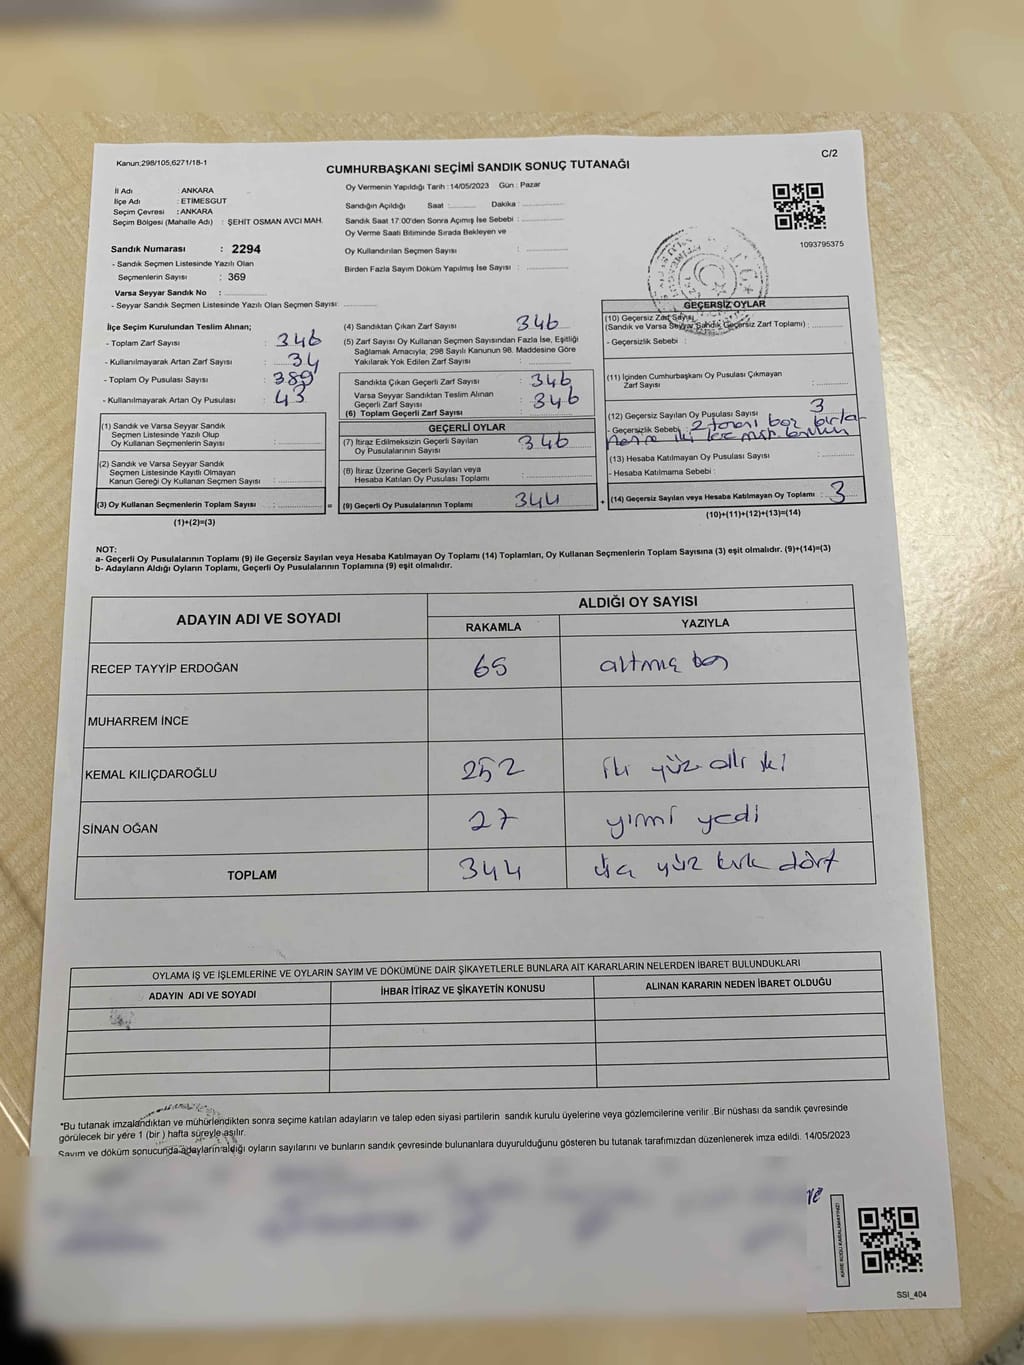 Kanun;298/105,6271/18-1
C/2
CUMHURBAŞKANI SEÇİMİ SANDIK SONUÇ TUTANAĞI
İl Adı : ANKARA
İlçe Adı : ETİMESGUT
Seçim Çevresi : ANKARA
Seçim Bölgesi (Mahalle Adı) : ŞEHİT OSMAN AVCI MAH.
Sandık Numarası : 2294
- Sandık Seçmen Listesinde Yazılı Olan
Seçmenlerin Sayısı : 369
Varsa Seyyar Sandık No :
- Seyyar Sandık Seçmen Listesinde Yazılı Olan Seçmen Sayısı:
Oy Vermenin Yapıldığı Tarih : 14/05/2023 Gün : Pazar
Sandığın Açıldığı Saat : Dakika :
Sandık Saat 17:00'den Sonra Açımış İse Sebebi :
Oy Verme Saati Bitiminde Sırada Bekleyen ve
Oy Kullandırılan Seçmen Sayısı :
Birden Fazla Sayım Döküm Yapılmış İse Sayısı :
1093795375
İlçe Seçim Kurulundan Teslim Alınan;
- Toplam Zarf Sayısı : 346
- Kullanılmayarak Artan Zarf Sayısı : 34
- Toplam Oy Pusulası Sayısı : 389
- Kullanılmayarak Artan Oy Pusulası : 43
(1) Sandık ve Varsa Seyyar Sandık
Seçmen Listesinde Yazılı Olup
Oy Kullanan Seçmenlerin Sayısı :
(2) Sandık ve Varsa Seyyar Sandık
Seçmen Listesinde Kayıtlı Olmayan
Kanun Gereği Oy Kullanan Seçmen Sayısı :
(3) Oy Kullanan Seçmenlerin Toplam Sayısı :
(1)+(2)=(3)
(4) Sandıktan Çıkan Zarf Sayısı : 346
(5) Zarf Sayısı Oy Kullanan Seçmen Sayısından Fazla İse, Eşitliği
Sağlamak Amacıyla, 298 Sayılı Kanunun 98. Maddesine Göre
Yakılarak Yok Edilen Zarf Sayısı :
Sandıkta Çıkan Geçerli Zarf Sayısı : 346
Varsa Seyyar Sandıktan Teslim Alınan
Geçerli Zarf Sayısı : 346
(6) Toplam Geçerli Zarf Sayısı :
GEÇERLİ OYLAR
(7) İtiraz Edilmeksizin Geçerli Sayılan
Oy Pusulalarının Sayısı : 346
(8) İtiraz Üzerine Geçerli Sayılan veya
Hesaba Katılan Oy Pusulası Toplamı :
= (9) Geçerli Oy Pusulalarının Toplamı : 344
GEÇERSİZ OYLAR
(10) Geçersiz Zarf Sayısı
(Sandık ve Varsa Seyyar Sandık Geçersiz Zarf Toplamı) :
- Geçersizlik Sebebi :
(11) İçinden Cumhurbaşkanı Oy Pusulası Çıkmayan
Zarf Sayısı :
(12) Geçersiz Sayılan Oy Pusulası Sayısı : 3
- Geçersizlik Sebebi : 2 tanesi boş
(13) Hesaba Katılmayan Oy Pusulası Sayısı :
- Hesaba Katılmama Sebebi :
+ (14) Geçersiz Sayılan veya Hesaba Katılmayan Oy Toplamı : 3
(10)+(11)+(12)+(13)=(14)
NOT:
a- Geçerli Oy Pusulalarının Toplamı (9) ile Geçersiz Sayılan veya Hesaba Katılmayan Oy Toplamı (14) Toplamları, Oy Kullanan Seçmenlerin Toplam Sayısına (3) eşit olmalıdır. (9)+(14)=(3)
b- Adayların Aldığı Oyların Toplamı, Geçerli Oy Pusulalarının Toplamına (9) eşit olmalıdır.
ADAYIN ADI VE SOYADI
ALDIĞI OY SAYISI
RAKAMLA YAZIYLA
RECEP TAYYİP ERDOĞAN 65 altmış beş
MUHARREM İNCE
KEMAL KILIÇDAROĞLU 252 iki yüz elli iki
SİNAN OĞAN 27 yirmi yedi
TOPLAM 344 üç yüz kırk dört
OYLAMA İŞ VE İŞLEMLERİNE VE OYLARIN SAYIM VE DÖKÜMÜNE DAİR ŞİKAYETLERLE BUNLARA AİT KARARLARIN NELERDEN İBARET BULUNDUKLARI
ADAYIN ADI VE SOYADI İHBAR İTİRAZ VE ŞİKAYETİN KONUSU ALINAN KARARIN NEDEN İBARET OLDUĞU
*Bu tutanak imzalandıktan ve mühürlendikten sonra seçime katılan adayların ve talep eden siyasi partilerin sandık kurulu üyelerine veya gözlemcilerine verilir .Bir nüshası da sandık çevresinde
görülecek bir yere 1 (bir ) hafta süreyle asılır.
Sayım ve döküm sonucunda adayların aldığı oyların sayılarını ve bunların sandık çevresinde bulunanlara duyurulduğunu gösteren bu tutanak tarafımızdan düzenlenerek imza edildi. 14/05/2023
KARE KODU KARALAMAYINIZ!
SSI_404